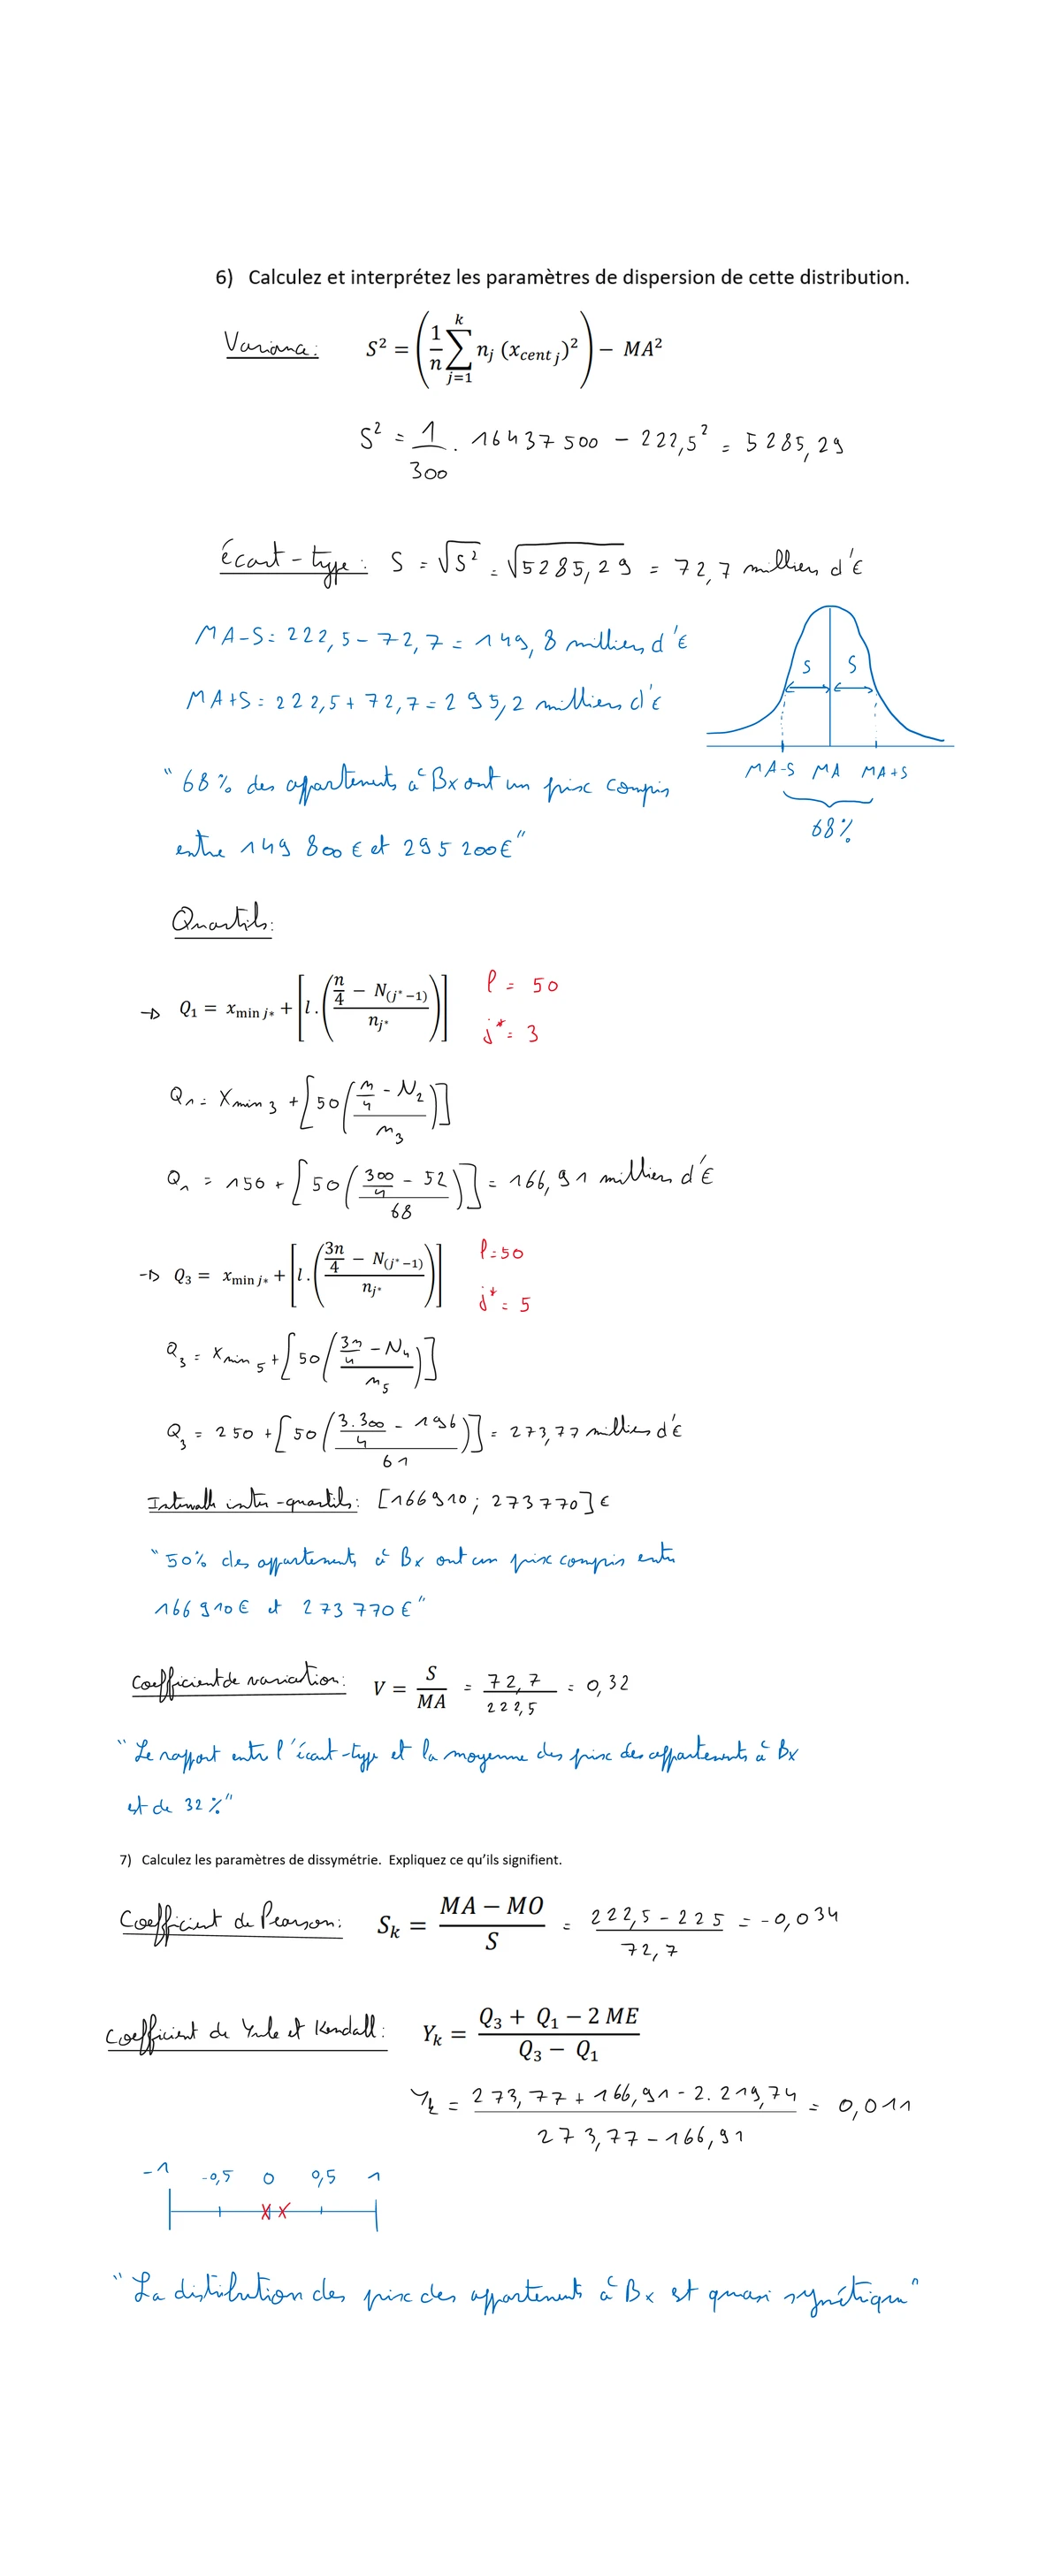 6) Calculez et interprétez les paramètres de dispersion de cette distribution.
Variance : S² = (1/n ∑_{j=1}^{k} n_j (x_{cent j})²) − MA²
S² = 1/300 . 16437500 − 222,5² = 5285,29
écart-type : S = √S² = √5285,29 = 72,7 milliers d'€
MA-S = 222,5 - 72,7 = 149,8 milliers d'€
MA+S = 222,5 + 72,7 = 295,2 milliers d'€
S S
MA-S MA MA+S
68%
"68% des appartements à Bx ont un prix compris
entre 149 800 € et 295 200€"
Quartils :
→ Q₁ = x_{min j*} + [l . ((n/4 − N_{(j*−1)})/n_{j*})] l = 50
j* = 3
Q₁ = X_{min 3} + [50 ((n/4 - N₂)/n₃)]
Q₁ = 150 + [50 ((300/4 - 52)/68)] = 166,91 milliers d'€
→ Q₃ = x_{min j*} + [l . ((3n/4 − N_{(j*−1)})/n_{j*})] l = 50
j* = 5
Q₃ = X_{min 5} + [50 ((3n/4 - N₄)/n₅)]
Q₃ = 250 + [50 ((3.300/4 - 196)/61)] = 273,77 milliers d'€
Intervalle inter-quartils : [166 910 ; 273 770] €
"50% des appartements à Bx ont un prix compris entre
166 910€ et 273 770€"
Coefficient de variation : V = S/MA = 72,7/222,5 = 0,32
"Le rapport entre l'écart-type et la moyenne des prix des appartements à Bx
est de 32%"
7) Calculez les paramètres de dissymétrie. Expliquez ce qu'ils signifient.
Coefficient de Pearson : S_k = (MA − MO)/S = (222,5 - 225)/72,7 = -0,034
Coefficient de Yule et Kendall : Y_k = (Q₃ + Q₁ − 2 ME)/(Q₃ − Q₁)
Y_k = (273,77 + 166,91 - 2. 219,74)/(273,77 - 166,91) = 0,011
-1 -0,5 0 0,5 1
x x
"La distribution des prix des appartements à Bx est quasi symétrique"